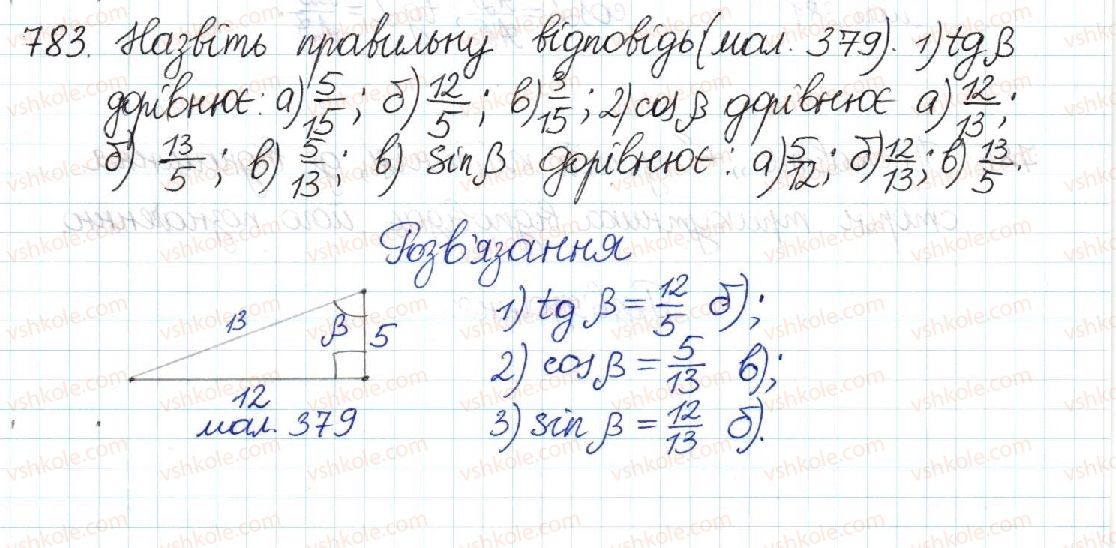 783. Назвіть правильну відповідь (мал. 379). 1) tg β
дорівнює: а) 5/15; б) 12/5; в) 3/15; 2) cos β дорівнює а) 12/13;
б) 13/5; в) 5/13; в) sin β дорівнює: а) 5/12; б) 12/13; в) 13/5.
Розв'язання
13 β 5
12
мал. 379
1) tg β = 12/5 б);
2) cos β = 5/13 в);
3) sin β = 12/13 б).